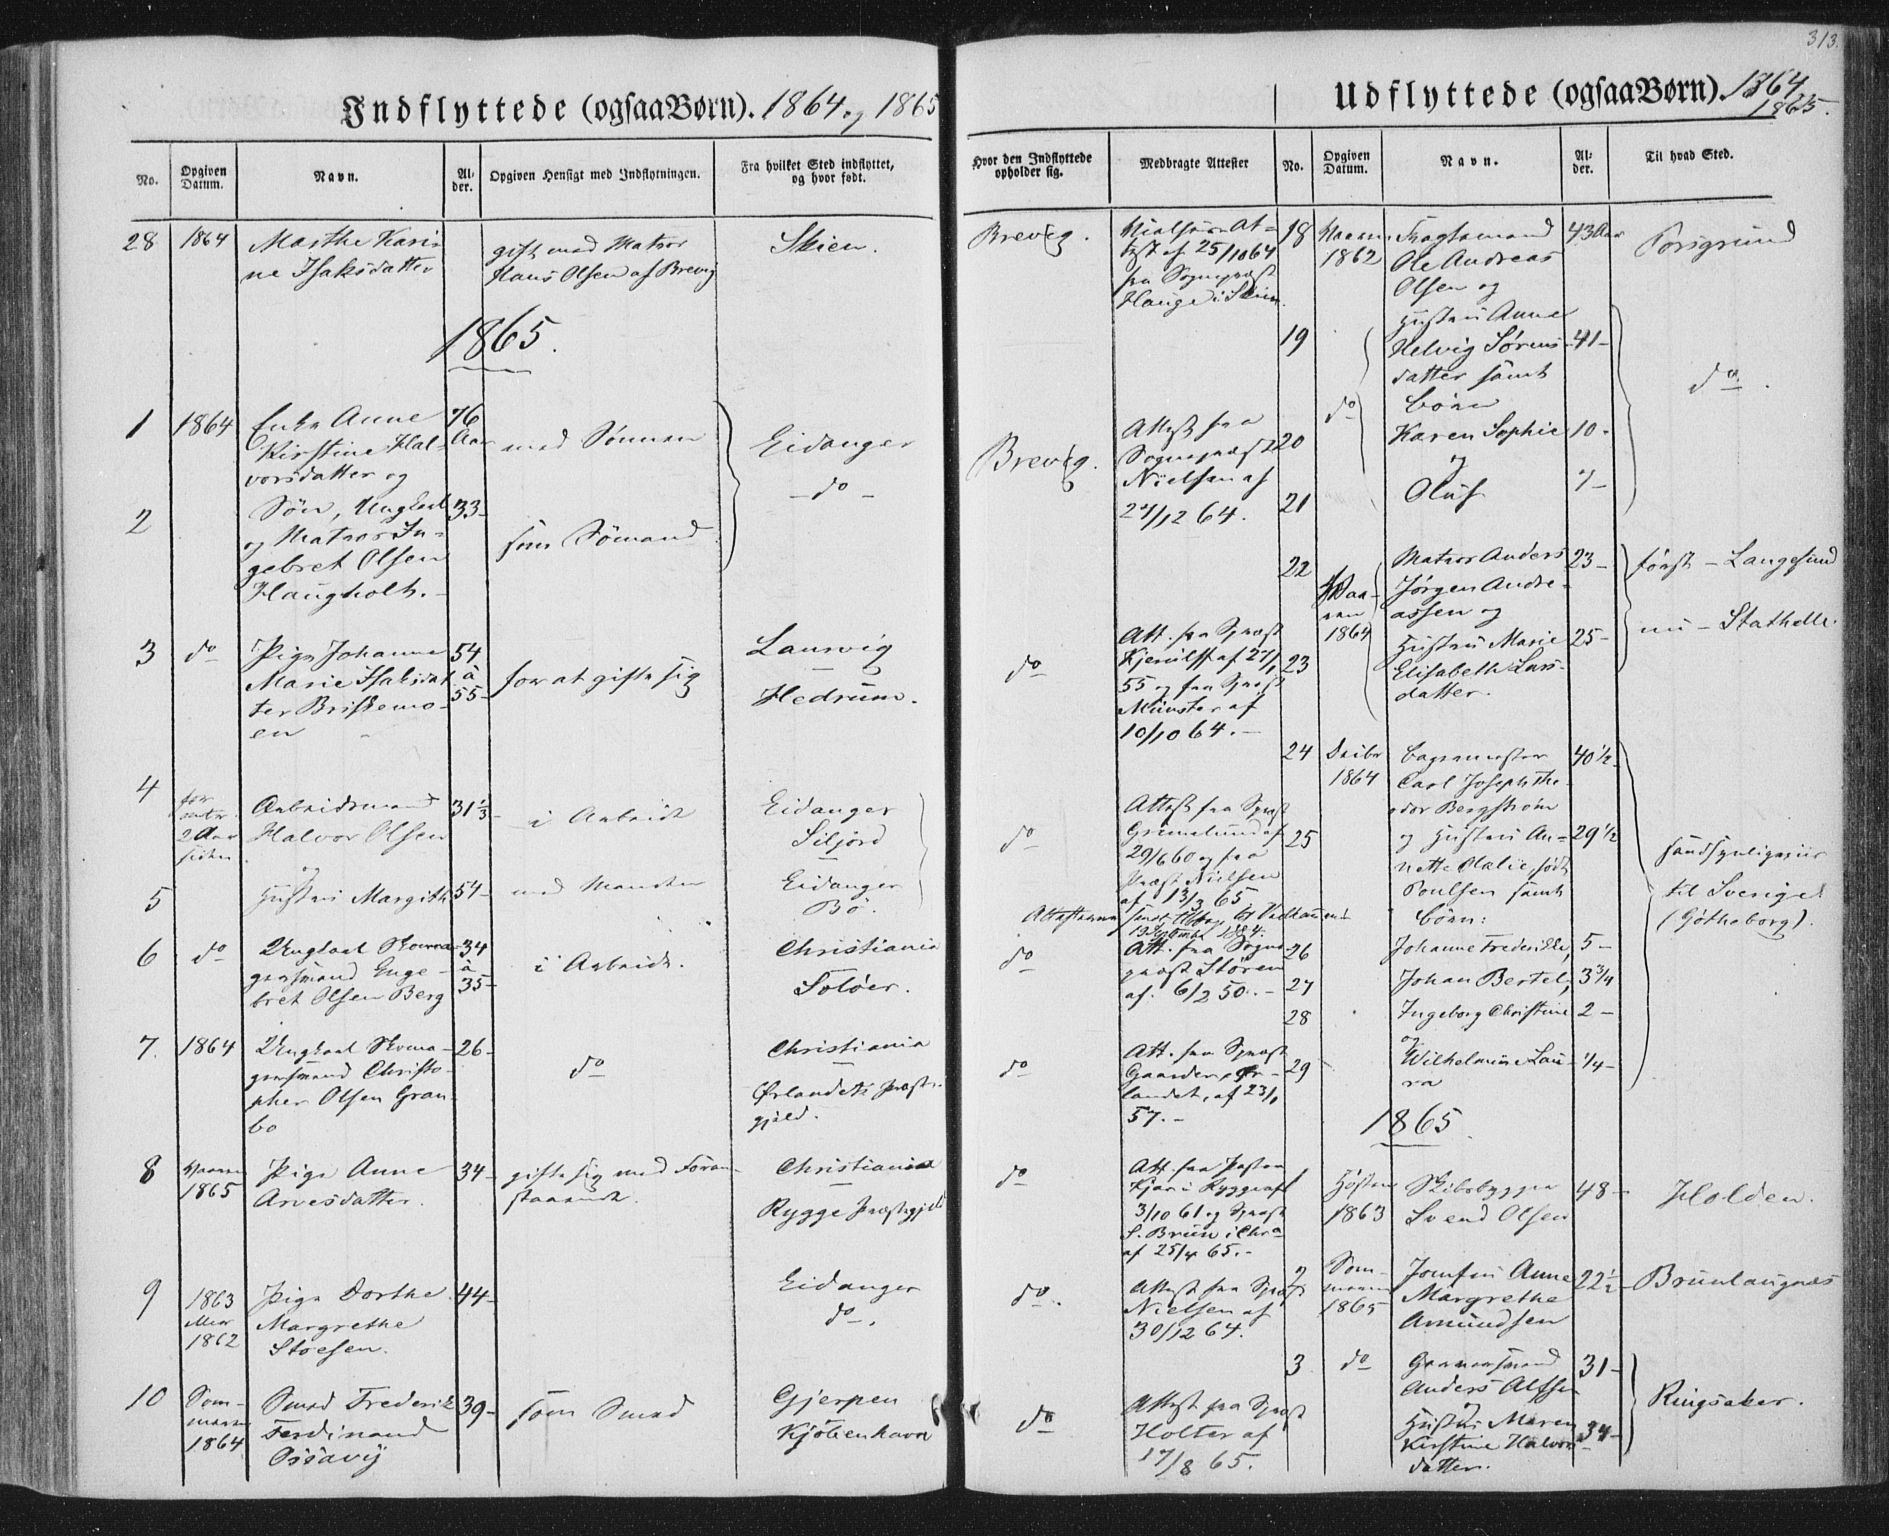 313.
Indflyttede (ogsaa Børn). 1864 og 1865
No.
Opgiven Datum.
Navn.
Al-
der.
Opgiven Hensigt med Indflytningen.
Fra hvilket Sted indflyttet,
og hvor født.
Hvor den Indflyttede
opholder sig.
Medbragte Attester
28 1864 Marthe Kari-
ne Isaksdatter
gift med Matros
Hans Olsen af Brevig
Skien.
Brevig.
af 25/10 64
fra Sognepræst
Hauge i Skien.
1865.
1 1864 Enke Anne
Kirstine Hal-
vorsdatter og
76
Aar
med Sønnen
Eidanger
-do-
Brevig.
Attest fra
Sognepræst
Nielsen af
27/12 64.
2 Søn, Ungkarl
og Matros In-
gebret Olsen
Haugholt.-
33-
som Sömand
3 do Pige Johanne
Marie Isaksdat-
ter Briskemo-
en
54
à
55-
for at gifte sig
Laurvig
Hedrum.
do
Att. fra Spræst
Kjerulff af 27/1
55 og fra Spræst
Münster af
10/10 64.-
4 for
2 Aar
siden
Arbeidsmand
Halvor Olsen
og
31 1/3-
i Arbeide
Eidanger
Siljord
do
Attest fra Spræst
Grimelund af
29/6 60 og fra
Præst Nielsen
af 13/3 65
5 Hustru Margith
54-
med Manden
Eidanger
Bö.
6 do Ungkarl Skoma-
gersvend Enge-
bret Olsen Berg
34
à
35-
i Arbeide.
Christiania
Soløer.
do
Att. fra Sogne-
præst Stören
af. 6/2 50.-
7. 1864 Ungkarl Skoma-
gersvend Christo-
pher Olsen Gran-
bo
26-
do
Christiania
Ørlandets Præste-
gjeld.
do
Att. fra Spræst
Gaarder, Ør-
landet, af 23/1
57.-
8 Vaaren
1865
Pige Anne
Arvesdatter.
34-
gifte sig med Foran-
staaende.
Christiania
Rygge Præstegjeld
do
Att. fra Pastor
Kjær i Rygge af
3/10 61 og Spræst
S. Bruun i Chra
af 25/4 65.-
9 1863
1862
Pige Dorthe
Margrethe
Stoesen.
44-
Eidanger
do.
do.
Attest fra Spræst
Nielsen af
30/12 64.
10 Som-
meren
1864
Smed Frederik
Ferdinand
39-
som Smed
Gjerpen
Kjöbenhavn
do
Attest fra Spræst
Holter af
17/8 65.
Udflyttede (ogsaa Børn). 1864
1865.
No.
Opgiven
Datum.
Navn.
Al-
der.
Til hvad Sted.
18 Vaaren
1862
Fragtemand
Ole Andreas
Olsen og
43 Aar
Porsgrund
19 Hustru Anne
Helvig Sörens-
datter samt
Börn
41-
do
do.
20 Karen Sophie
og
10-
21 Oluf
7-
22 Vaa-
ren
1864
Matros Anders
Jørgen Andre-
assen og
23-
først - Langesund
nu - Stathelle.
23 Hustru Marie
Elisabeth Lars-
datter.
25-
24 Decbr
1864
Bagermester
Carl Joseph The-
odor Bergstrøm
40 1/2-
25 og Hustru An-
nette Olalie, født
Poulsen samt
Börn:
29 1/2
sandsynligviis
til Sverige
(Gøtheborg).
26 Johanne Frederikke,
5-
27 Johan Bertel,
3 3/4
28 Ingeborg Christine
og
2-
29 Wilhelmine Lau-
ra
1/4-
1865
1 Høsten
1863
Skibsbygger
Svend Olsen
48-
Holden.
2 Som-
meren
1865
Jomfru Anne
Margrethe
Amundsen
22 1/2-
Brunlaugnæs
3 do
Anders Alfsen
og
31-
Ringsaker.
Hustru Maren
Kirstine Halvors-
datter.
34-